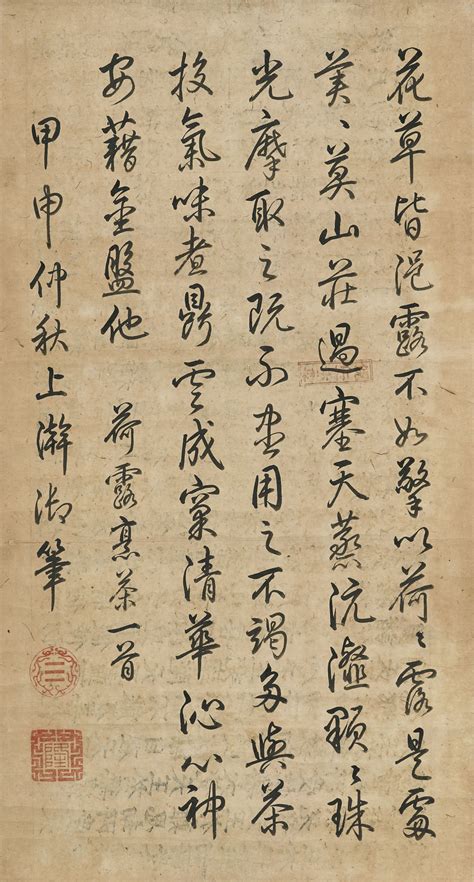 花草皆浥露不如擎以荷〻露是處
美〻莫山莊過塞天蒸沆瀣顆〻珠
光摩取之既不盡用之不竭多與茶
投氣味煮鼎云成窠清華沁心神
安藉金盤他 荷露烹茶一首
甲申仲秋上澣御筆